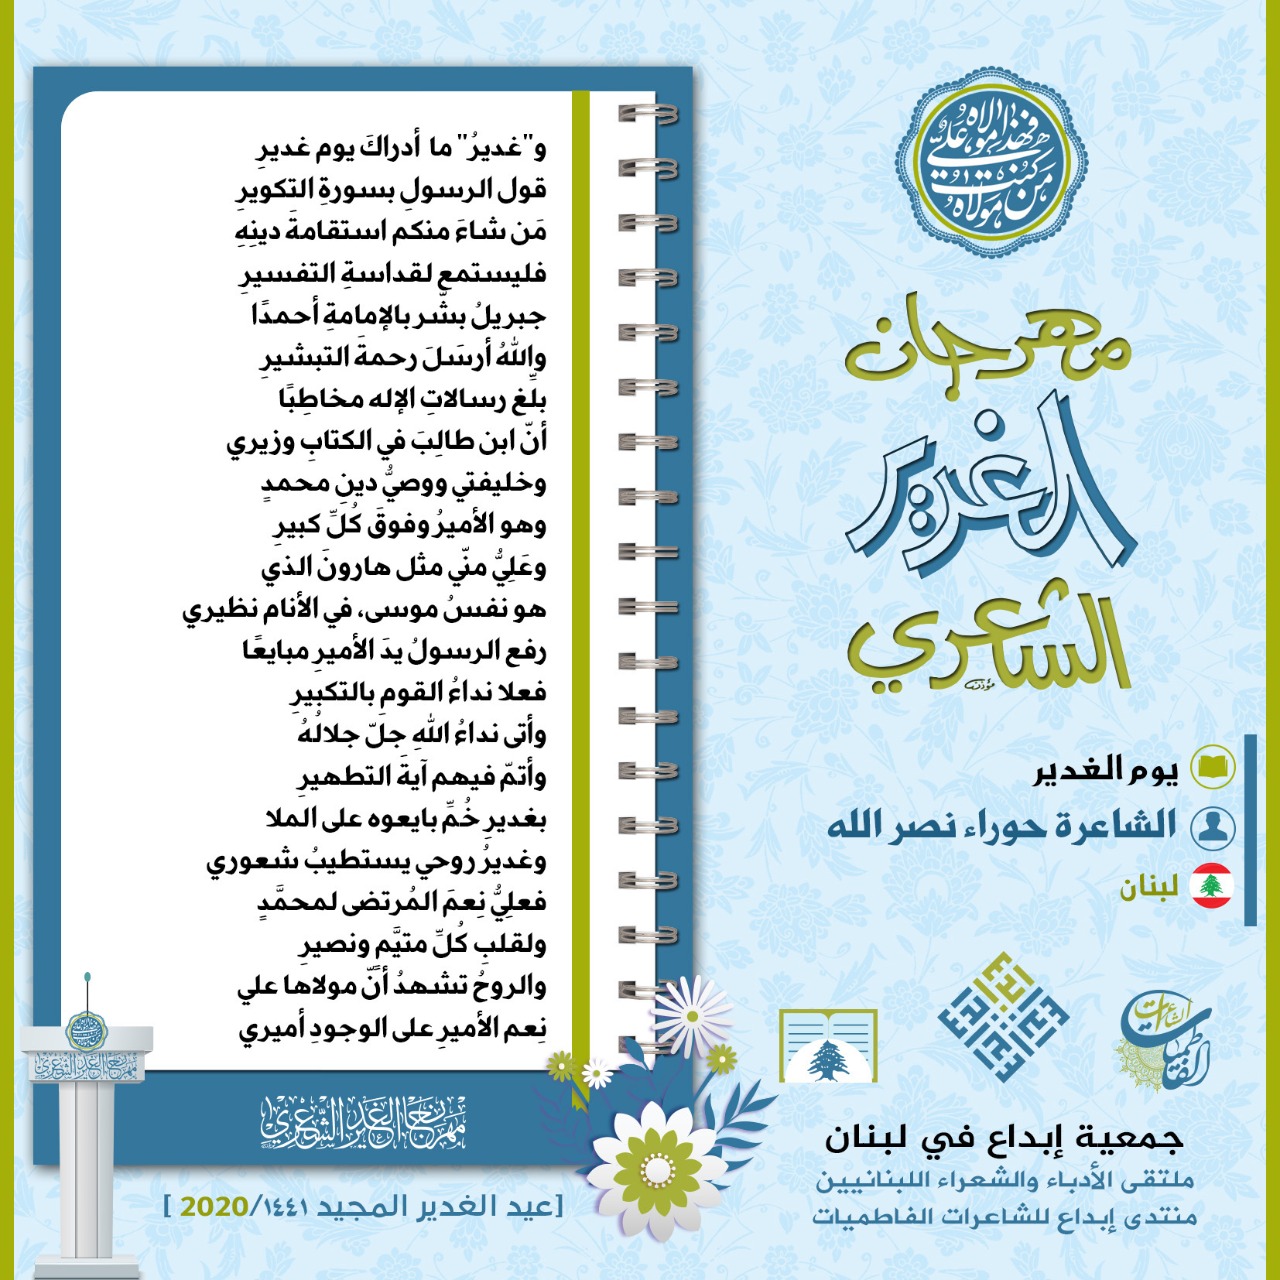 من كنت مولاه فهذا علي مولاه
مهرجان
الغدير
الشاعري
يوم الغدير
الشاعرة حوراء نصر الله
لبنان
و"غديرُ" ما أدراكَ يوم غديرِ
قول الرسولِ بسورةِ التكويرِ
مَن شاءَ منكم استقامةَ دينِهِ
فليستمع لقداسةِ التفسيرِ
جبريلُ بشّر بالإمامةِ أحمدًا
واللهُ أرسَلَ رحمةَ التبشيرِ
بلِّغ رسالاتِ الإله مخاطِبًا
أنّ ابن طالِبَ في الكتابِ وزيري
وخليفتي ووصيُّ دينِ محمدٍ
وهو الأميرُ وفوقَ كُلِّ كبيرِ
وعَلِيُّ منّي مثل هارونَ الذي
هو نفسُ موسى، في الأنام نظيري
رفع الرسولُ يدَ الأميرِ مبايعًا
فعلا نداءُ القومِ بالتكبيرِ
وأتى نداءُ اللهِ جلّ جلالُهُ
وأتمّ فيهم آيةَ التطهيرِ
بغديرِ خُمِّ بايعوه على الملا
وغديرُ روحي يستطيبُ شعوري
فعلِيُّ نِعمَ المُرتضى لمحمَّدٍ
ولقلبِ كُلِّ متيَّمٍ ونصيرِ
والروحُ تشهدُ أنّ مولاها علي
نِعم الأميرِ على الوجودِ أميري
مهرجان الغدير الشعري
[عيد الغدير المجيد ١٤٤١/2020 ]
الشاعرات الفاطميات
جمعية إبداع في لبنان
ملتقى الأدباء والشعراء اللبنانيين
منتدى إبداع للشاعرات الفاطميات